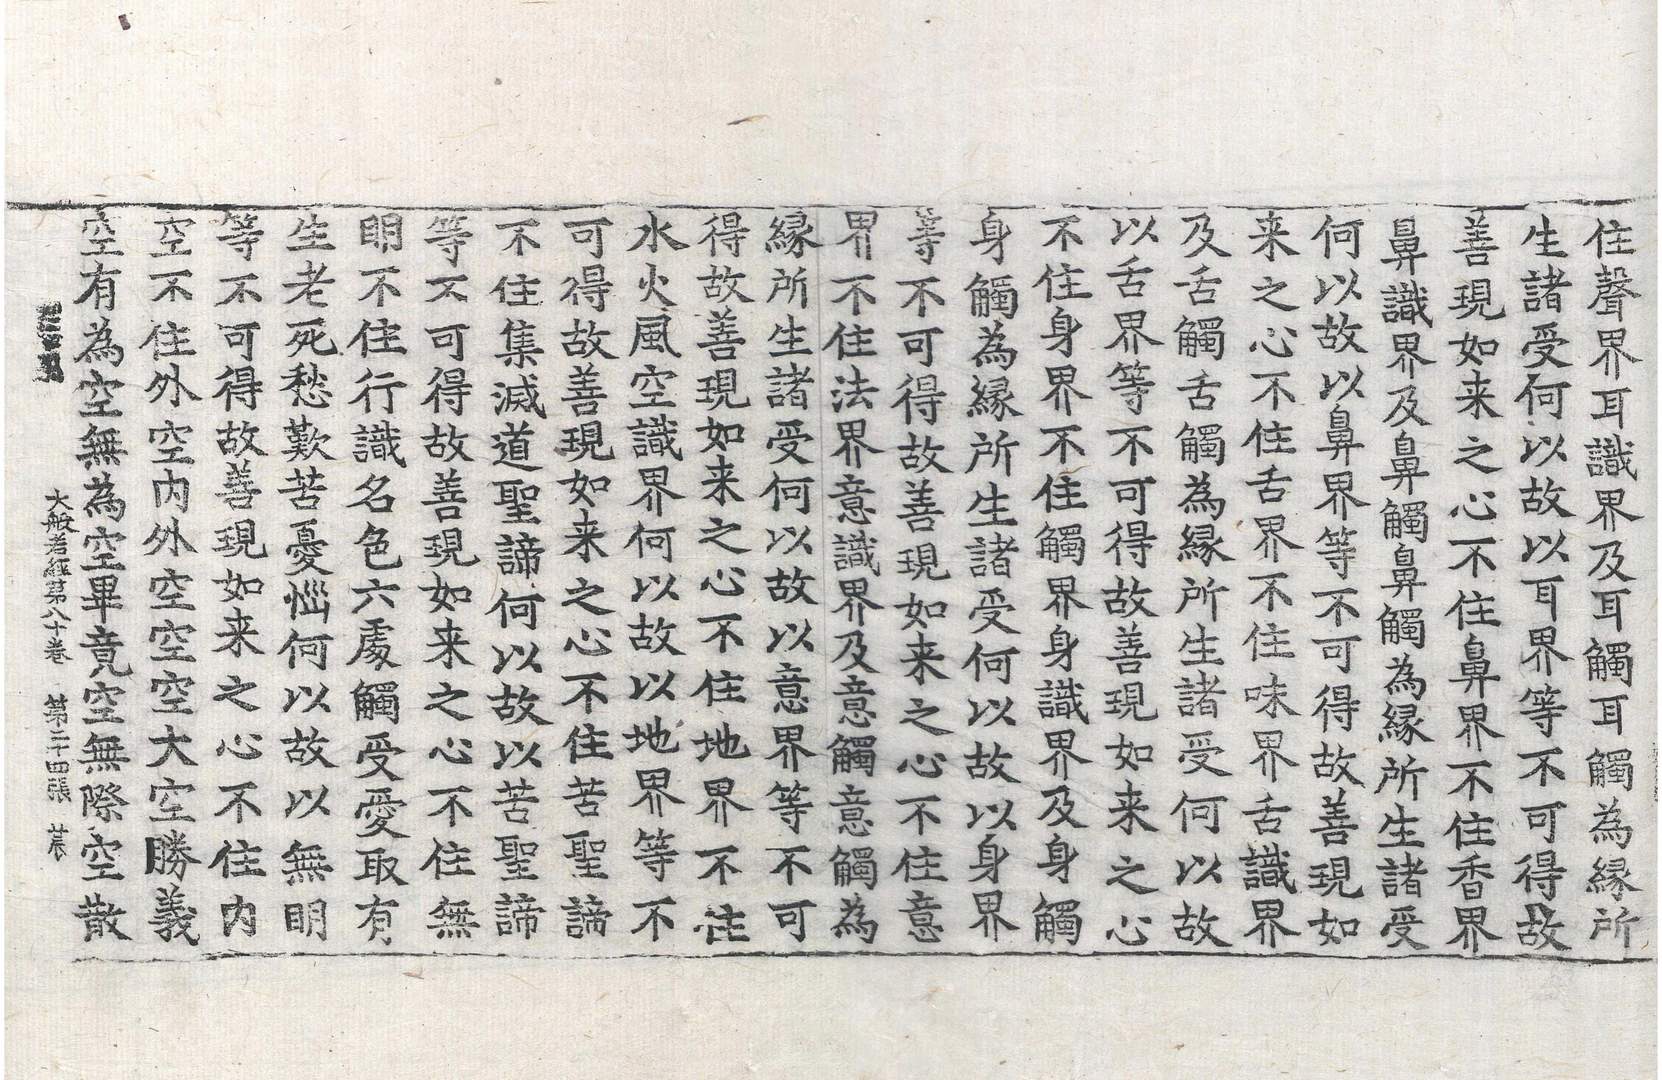 住聲界耳識界及耳觸耳觸為縁所
生諸受何以故以耳界等不可得故
善現如来之心不住鼻界不住香界
鼻識界及鼻觸鼻觸為縁所生諸受
何以故以鼻界等不可得故善現如
来之心不住舌界不住味界舌識界
及舌觸舌觸為縁所生諸受何以故
以舌界等不可得故善現如来之心
不住身界不住觸界身識界及身觸
身觸為縁所生諸受何以故以身界
等不可得故善現如来之心不住意
界不住法界意識界及意觸意觸為
縁所生諸受何以故以意界等不可
得故善現如来之心不住地界不住
水火風空識界何以故以地界等不
可得故善現如来之心不住苦聖諦
不住集滅道聖諦何以故以苦聖諦
等不可得故善現如来之心不住無
明不住行識名色六處觸受愛取有
生老死愁歎苦憂惱何以故以無明
等不可得故善現如来之心不住内
空不住外空内外空空空大空勝義
空有為空無為空畢竟空無際空散
大般若經第八十卷 第二十四張 荒